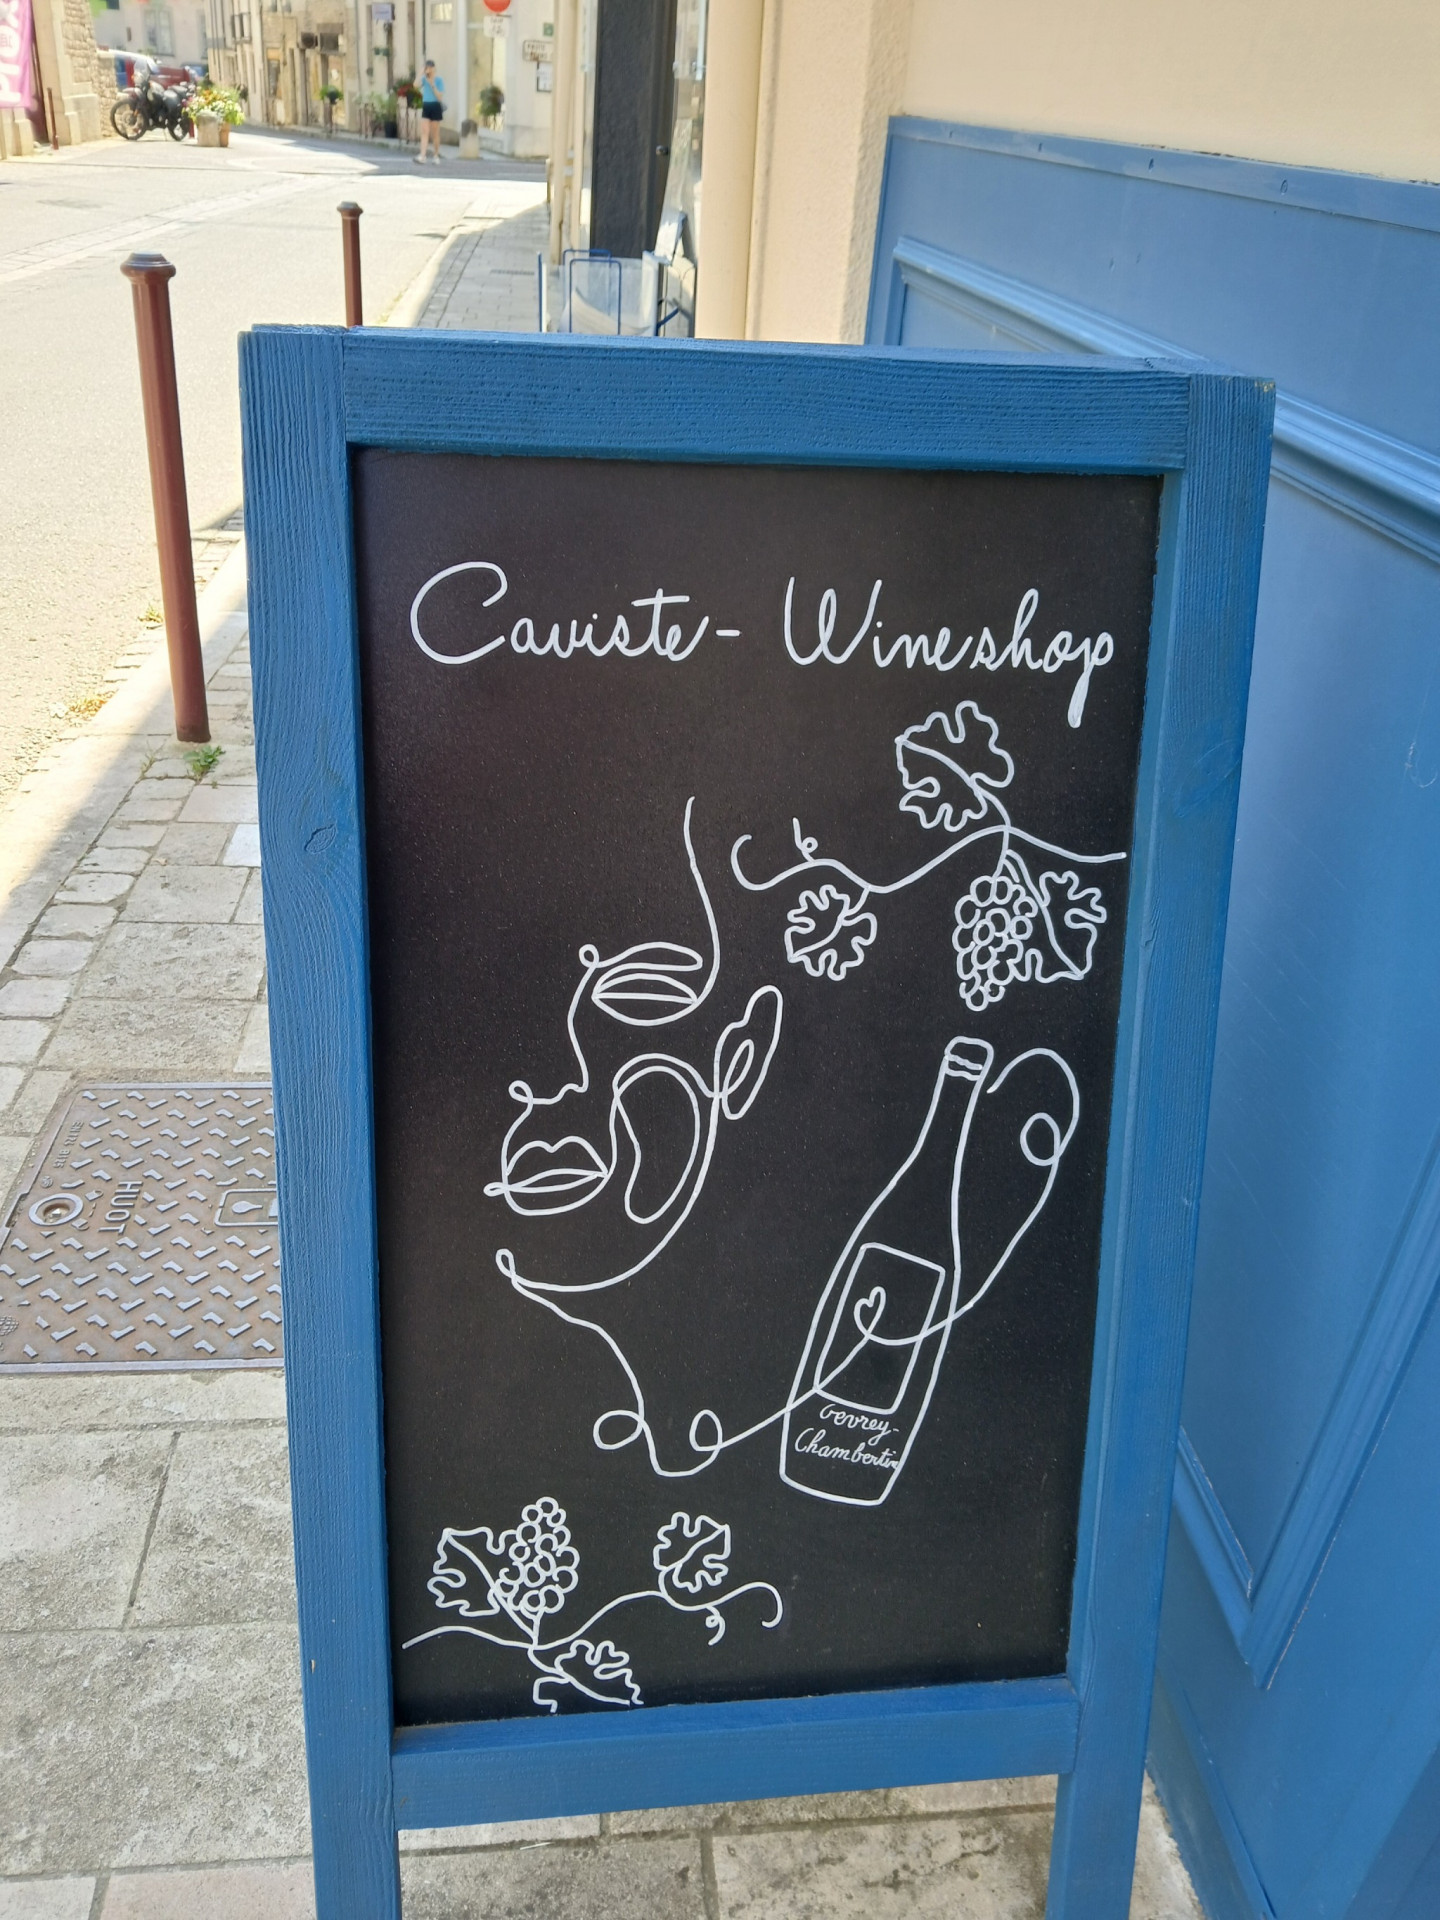 Caviste - Wineshop
Gevrey-
Chambertin
HUOT